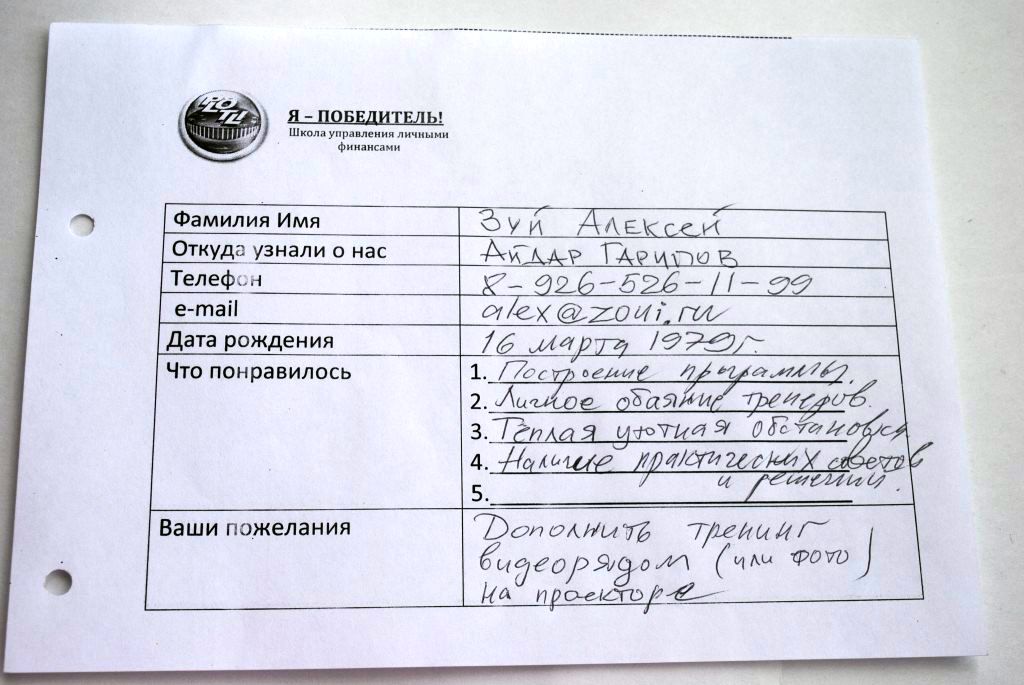 Я – ПОБЕДИТЕЛЬ!
Школа управления личными
финансами
Фамилия Имя Зуй Алексей
Откуда узнали о нас Айдар Гарипов
Телефон 8-926-526-11-99
e-mail alex@zoui.ru
Дата рождения 16 марта 1979г.
Что понравилось 1. Построение программы.
2. Личное обаяние тренеров.
3. Тёплая уютная обстановка
4. Наличие практических советов
и решений.
5.
Ваши пожелания Дополнить тренинг
видеорядом (или фото)
на проекторе